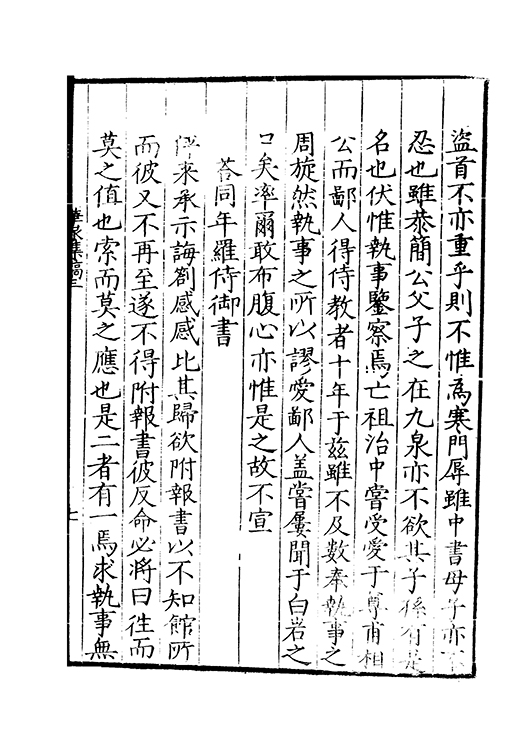 盜首不亦重乎則不惟爲寒門辱雖中書母子亦不
忍也雖恭簡公父子之在九泉亦不欲其子孫有是
名也伏惟執事鑒察焉亡祖治中嘗受愛于尊甫相
公而鄙人得侍教者十年于玆雖不及數奉執事之
周旋然執事之所以謬愛鄙人盖嘗屢聞于白岩之
口矣率爾敢布腹心亦惟是之故不宣
答同年羅侍御書
伻來承示誨劄感感比其歸欲附報書以不知館所
而彼又不再至遂不得附報書彼反命必將曰徃而
莫之值也索而莫之應也是二者有一焉求執事無
華泉集稿三
七